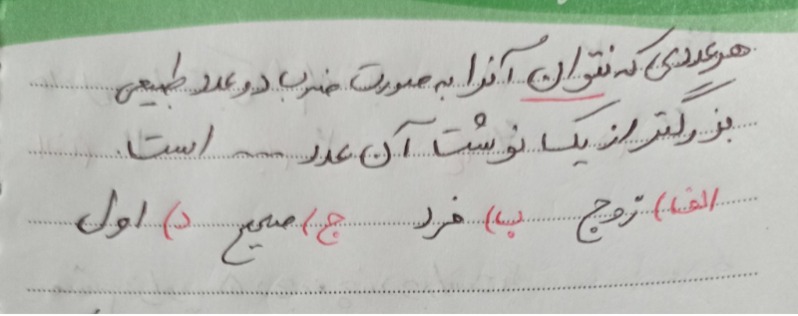 هر عددی که نتوان آنرا به صورت ضرب دو عدد طبیعی
بزرگتر از یک نوشت آن عدد ---- است.
الف) زوج ب) فرد ج) صحیح د) اول